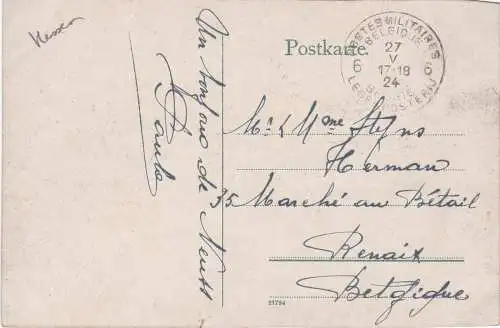 Un bonjour de Neuss
Paula
Postkarte
POSTES MILITAIRES
BELGIQUE
27
V
17-18
24
6 6
BELGIË
LEGERPOSTERIJ
Mr & Mme Steyns
Herman
35 Marché au Bétail
Renaix
Belgique
21794